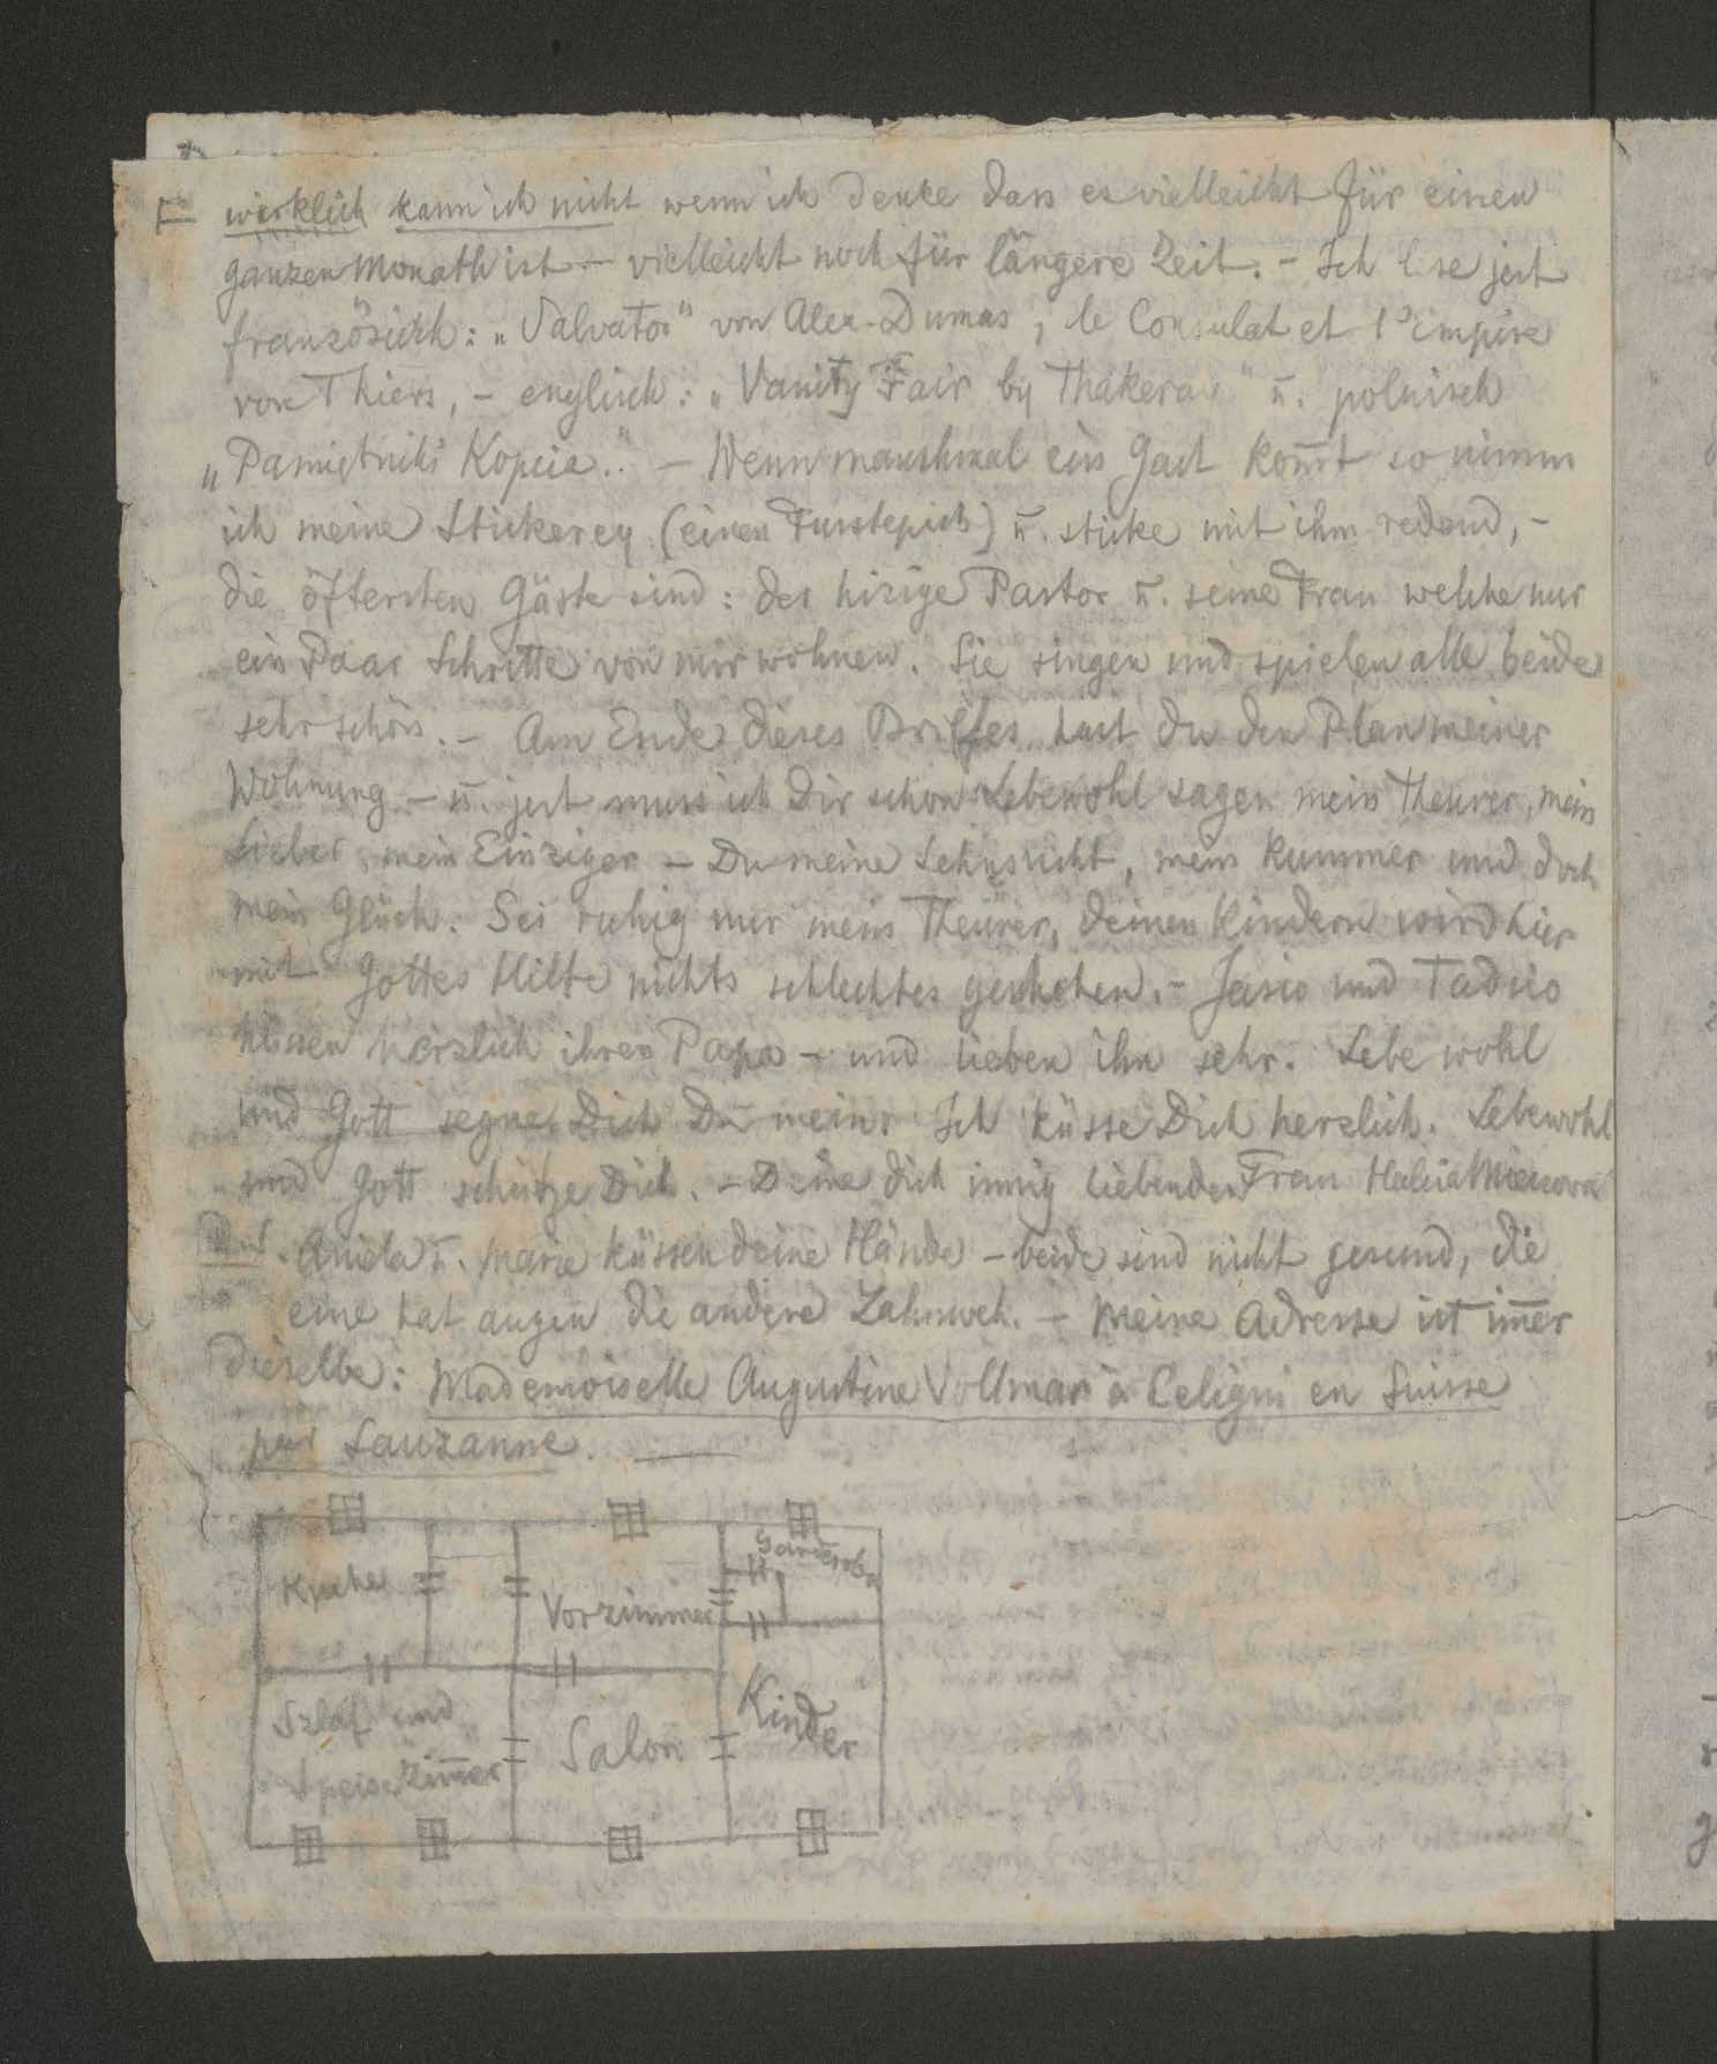 II wirklich kann ich nicht wenn ich denke dass es vielleicht für einen
ganzen Monath ist – vielleicht noch für längere Zeit. – Ich lese jezt
französisch: „Salvator" von Alex. Dumas, le Consulat et l'empire
von Thiers, – englisch: „Vanity Fair by Thakeray" u. polnisch
„Pamiętniki Kopcia.." – Wenn manchmal ein Gast kom̄t so nimm
ich meine Stickerey (einen Fusstepich) u. sticke mit ihm redend, –
die öftersten Gäste sind: der hisige Pastor u. seine Frau welche nur
ein Paar Schritte von mir wohnen. Sie singen und spielen alle beide
sehr schön. – Am Ende dieses Briffes hast du den Plan meiner
Wohnung – u. jezt muss ich Dir schon Lebewohl sagen mein Theurer, mein
Lieber, mein Einziger – Du meine Sehnsucht, mein Kummer und doch
mein Glück. Sei ruhig nur mein Theurer, deinen Kindern wird hier
mit Gottes Hilfe nichts schlechtes geschehen. – Jasio und Tadzio
küssen herzlich ihren Papa – und lieben ihn sehr. Lebe wohl
und Gott segne Dich Du mein. Ich küsse Dich herzlich. Lebewohl
und Gott schütze Dich. – Deine dich innig liebende Frau Halia
P.S. Aniela u. Marie küssen deine Hände – beide sind nicht gesund, die
eine hat augen die andere Zahnweh. – Meine Adresse ist im̄er
dieselbe: Mademoiselle Augustine Vollmar à Celigni en Suisse
par Lauzanne.
Garderobe
Kuche
Vorzimmer
Kinder
Szlaf und
Speisezim̄er
Salon